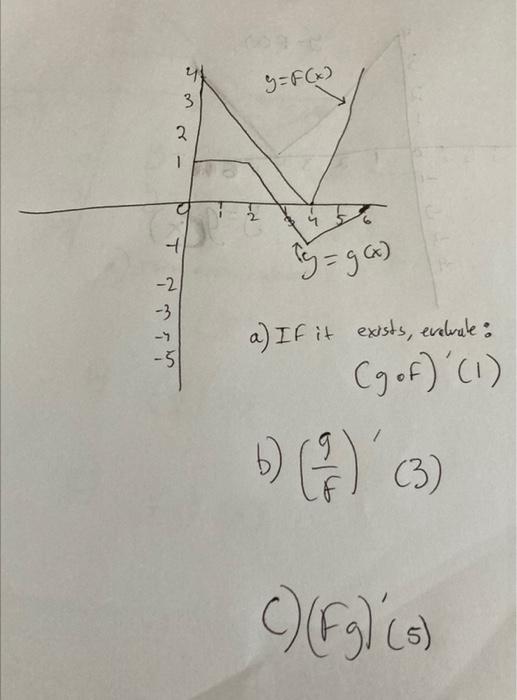 4
y=F(x)
3
2
1
0 1 2 3 4 5 6
-1
y=g(x)
-2
-3
-4
-5
a) IF it exists, evaluate:
(g∘F)'(1)
b) (g/F)' (3)
c) (Fg)'(5)